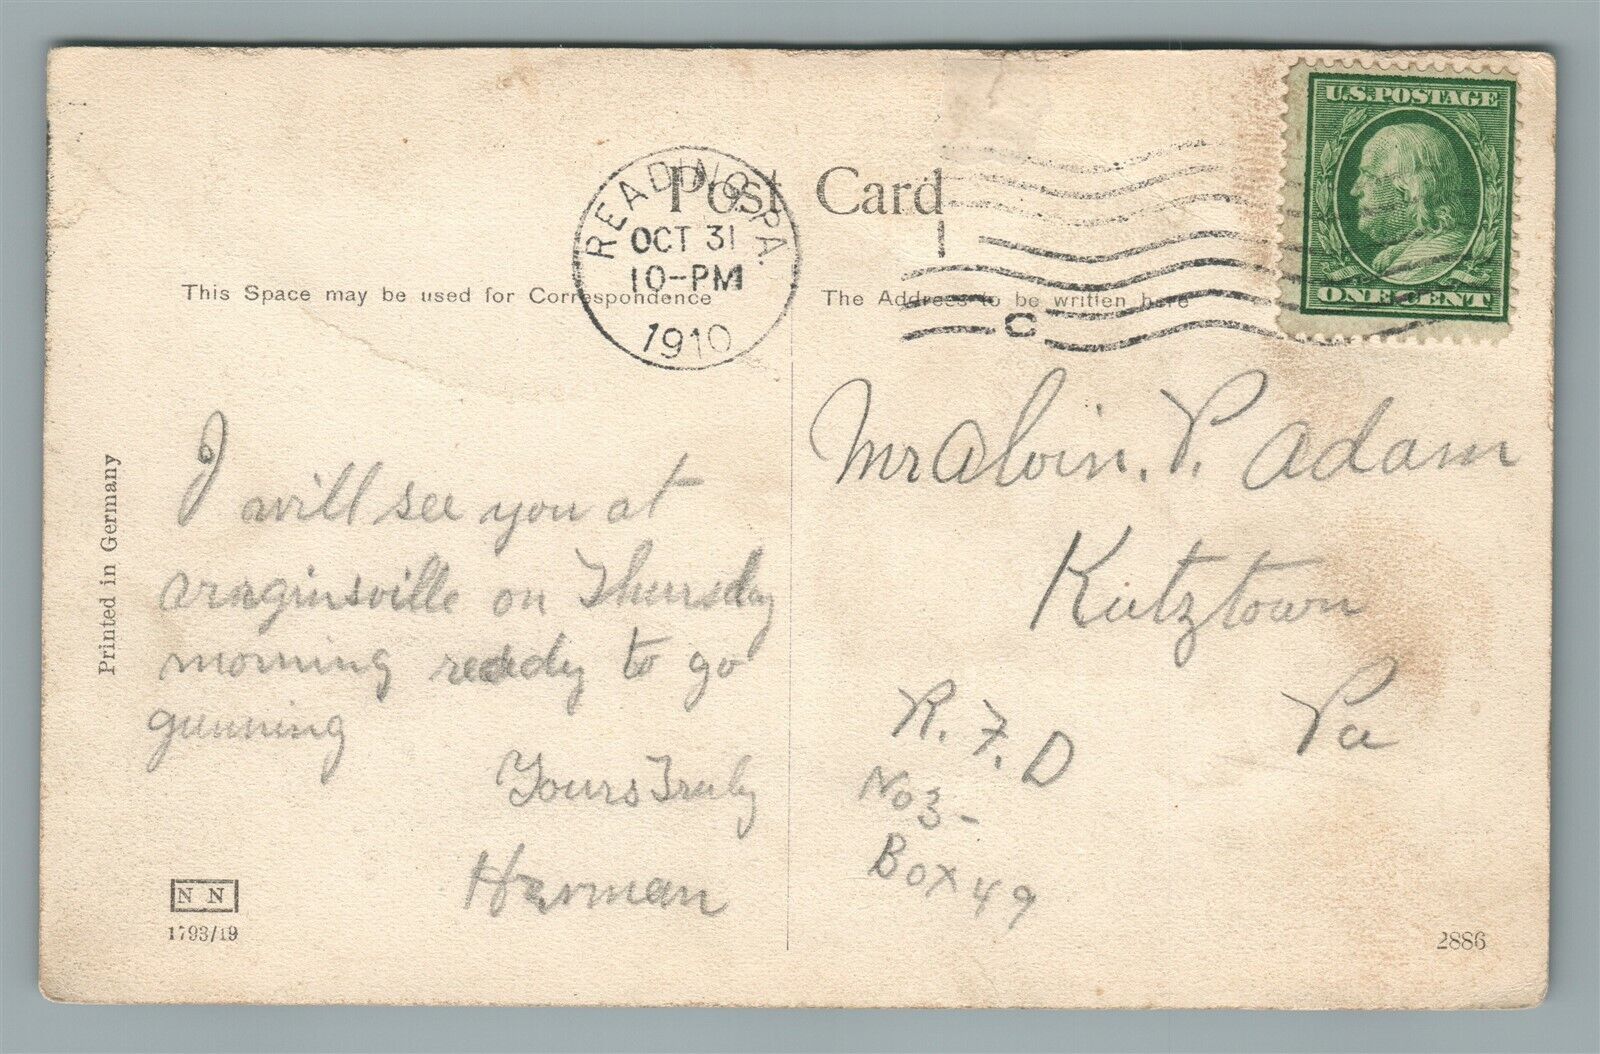 Post Card
READING, PA.
OCT 31
10-PM
1910
1
C
U.S. POSTAGE
ONE CENT
This Space may be used for Correspondence
The Address to be written here
Printed in Germany
I will see you at
araginsville on Thursday
morning ready to go
gunning
Yours Truly
Herman
Mr Alvin. P. Adam
Kutztown
Pa
R. F. D
No 3-
Box 49
N N
1793/19
2886